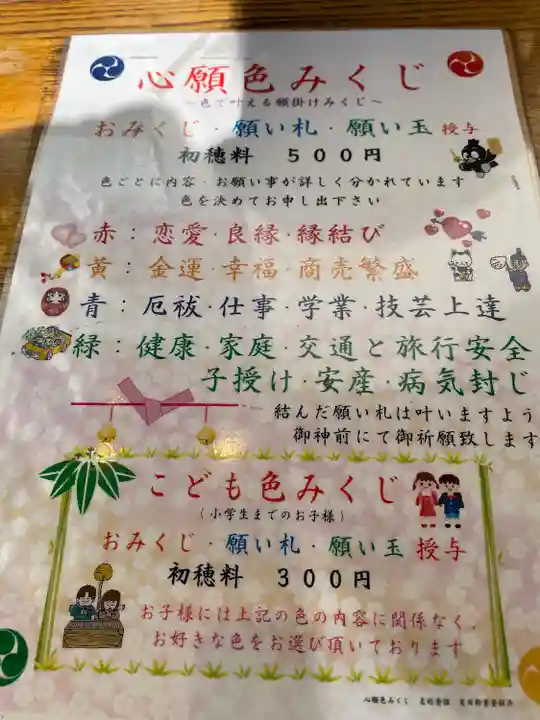 心願色みくじ
～色で叶える願掛けみくじ～
おみくじ・願い札・願い玉 授与
初穂料 500円
色ごとに内容・お願い事が詳しく分かれています
色を決めてお申し出下さい
赤：恋愛・良縁・縁結び
黄：金運・幸福・商売繁盛
青：厄祓・仕事・学業・技芸上達
緑：健康・家庭・交通と旅行安全
子授け・安産・病気封じ
結んだ願い札は叶いますよう
御神前にて御祈願致します
こども色みくじ
(小学生までのお子様)
おみくじ・願い札・願い玉 授与
初穂料 300円
お子様には上記の色の内容に関係なく、
お好きな色をお選び頂いております
心願色みくじ